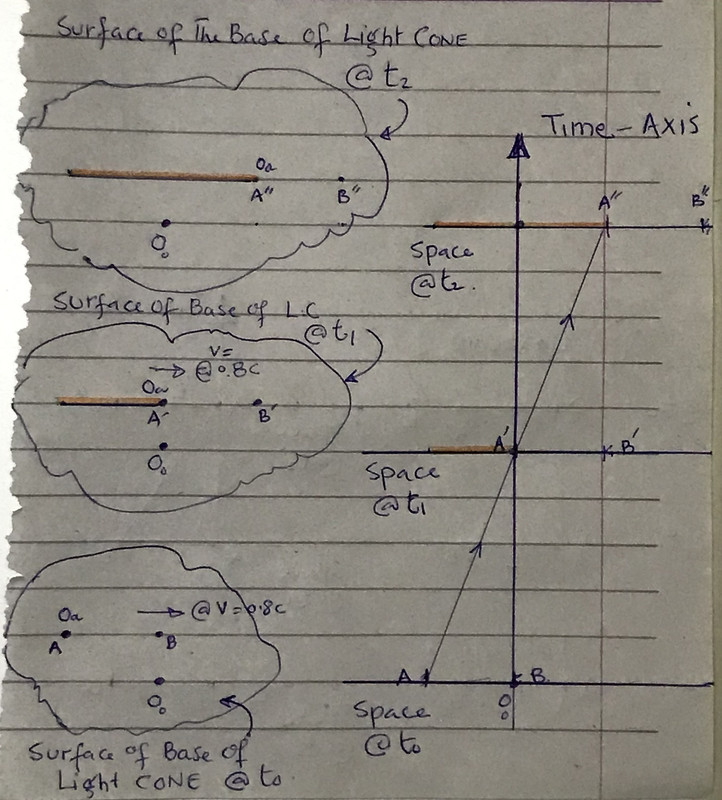 Surface of The Base of Light CONE
@ t₂
Time-AXiS
Oa
A"
B"
O₀
A"
B"
Space
@t₂.
Surface of Base of L.C
@t₁
V=
→ @ 0.8C
Oa
A'
B'
O₀
A'
B'
Space
@t₁
Oa
→ @ V=0.8C
A
B
O₀
A
B
O₀
Space
@t₀
Surface of Base of
Light CONE @ t₀